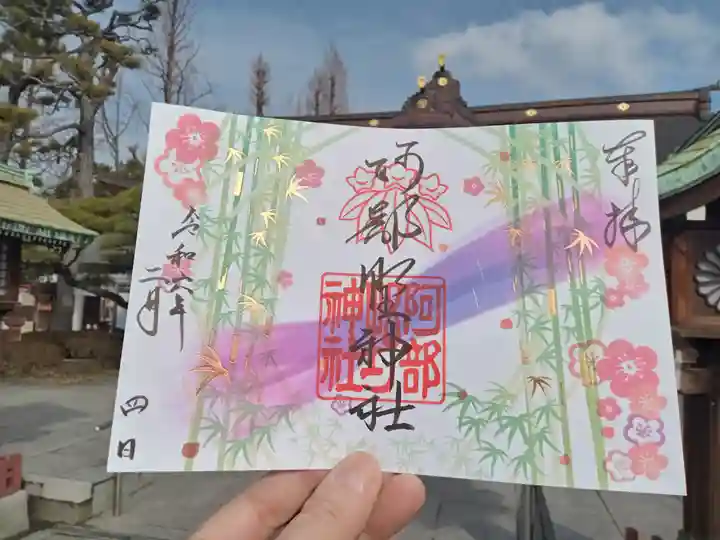 奉拝
阿部野神社
阿部野神社
令和六年
二月
四日